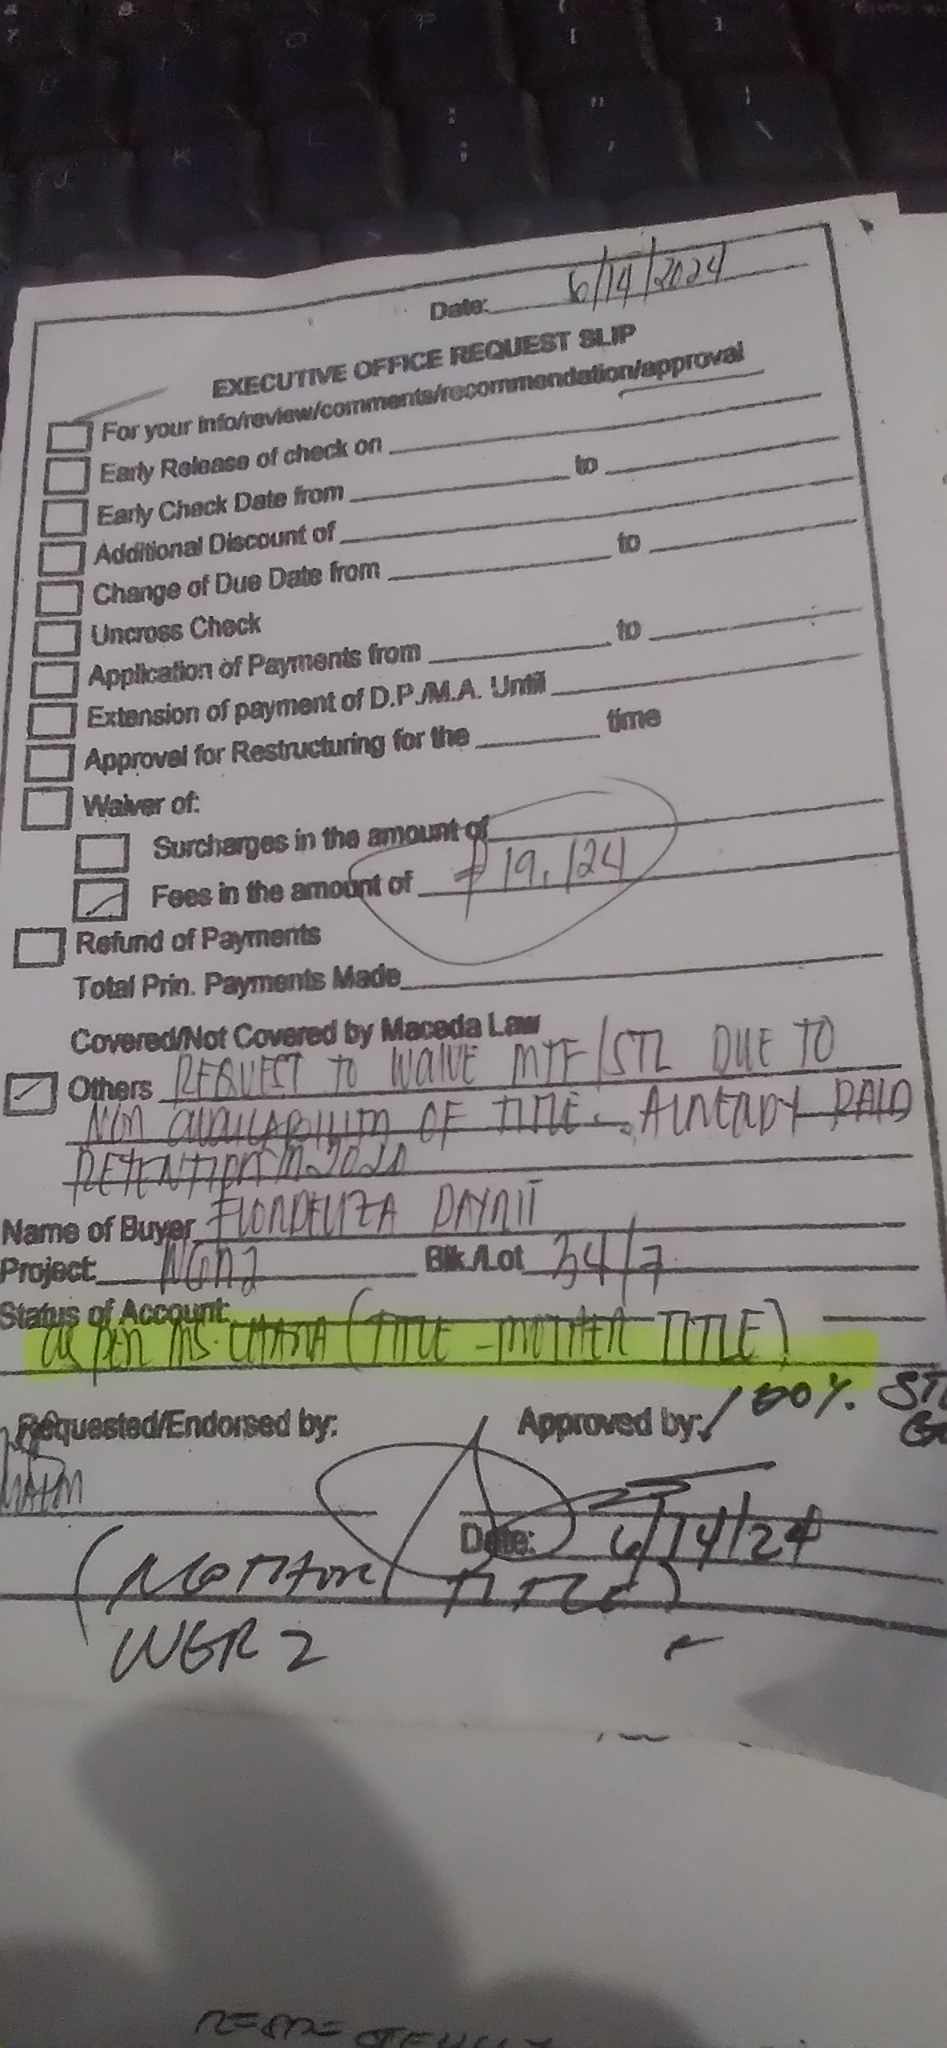 Date: 6/14/2024
EXECUTIVE OFFICE REQUEST SLIP
For your info/review/comments/recommendation/approval
Early Release of check on
Early Check Date from to
Additional Discount of
Change of Due Date from to
Uncross Check
Application of Payments from to
Extension of payment of D.P./M.A. Until
Approval for Restructuring for the time
Waiver of:
Surcharges in the amount of
Fees in the amount of ₱19,124
Refund of Payments
Total Prin. Payments Made
Covered/Not Covered by Maceda Law
Others REQUEST TO WAIVE MTF/STL DUE TO
NON AVAILABILITY OF TITLE. ALREADY PAID
RETENTION IN 2020
Name of Buyer FLORDELIZA DAYRIT
Project: WGR2 Blk./Lot 34/7
Status of Account:
as per MS. (TITLE - MOTHER TITLE)
Requested/Endorsed by: Approved by: 100%.
Date: 6/14/24
(MOTHER TITLE)
WGR 2